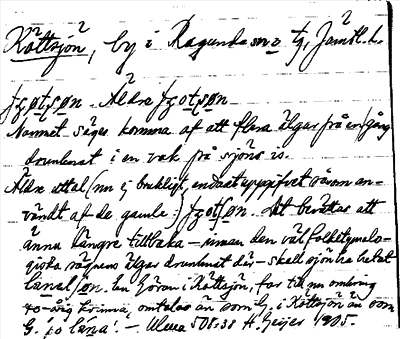 Köttsjön, by i Ragunda sn o tg, Jämtl. l.
Äldre
Namnet säges komma af att flera älgar på en gång
drunknat i en vak på sjöns is.
Äldre uttal (nu ej brukligt, endast uppgifvet såsom an-
vändt af de gamle:) Det berättas att
ännu längre tillbaka – innan den väl folketymolo-
giska sägnens älgar drunknat där – skall sjön ha hetat
En Göran i Köttsjön, far till nu omkring
40-årig kvinna, omtalas än som G. i Köttsjön än som
G. på – Ulma 508:38 H. Geijer 1905.